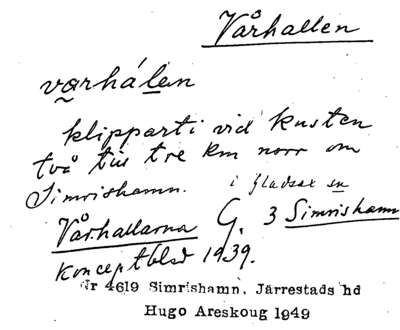 Vårhallen
varhálen
klipparti vid kusten
två till tre km norr om
Simrishamn. i Gladsax sn
Vårhallarna G. 3 Simrishamn
Konceptblad 1939.
Nr 4619 Simrishamn, Järrestads hd
Hugo Areskoug 1949